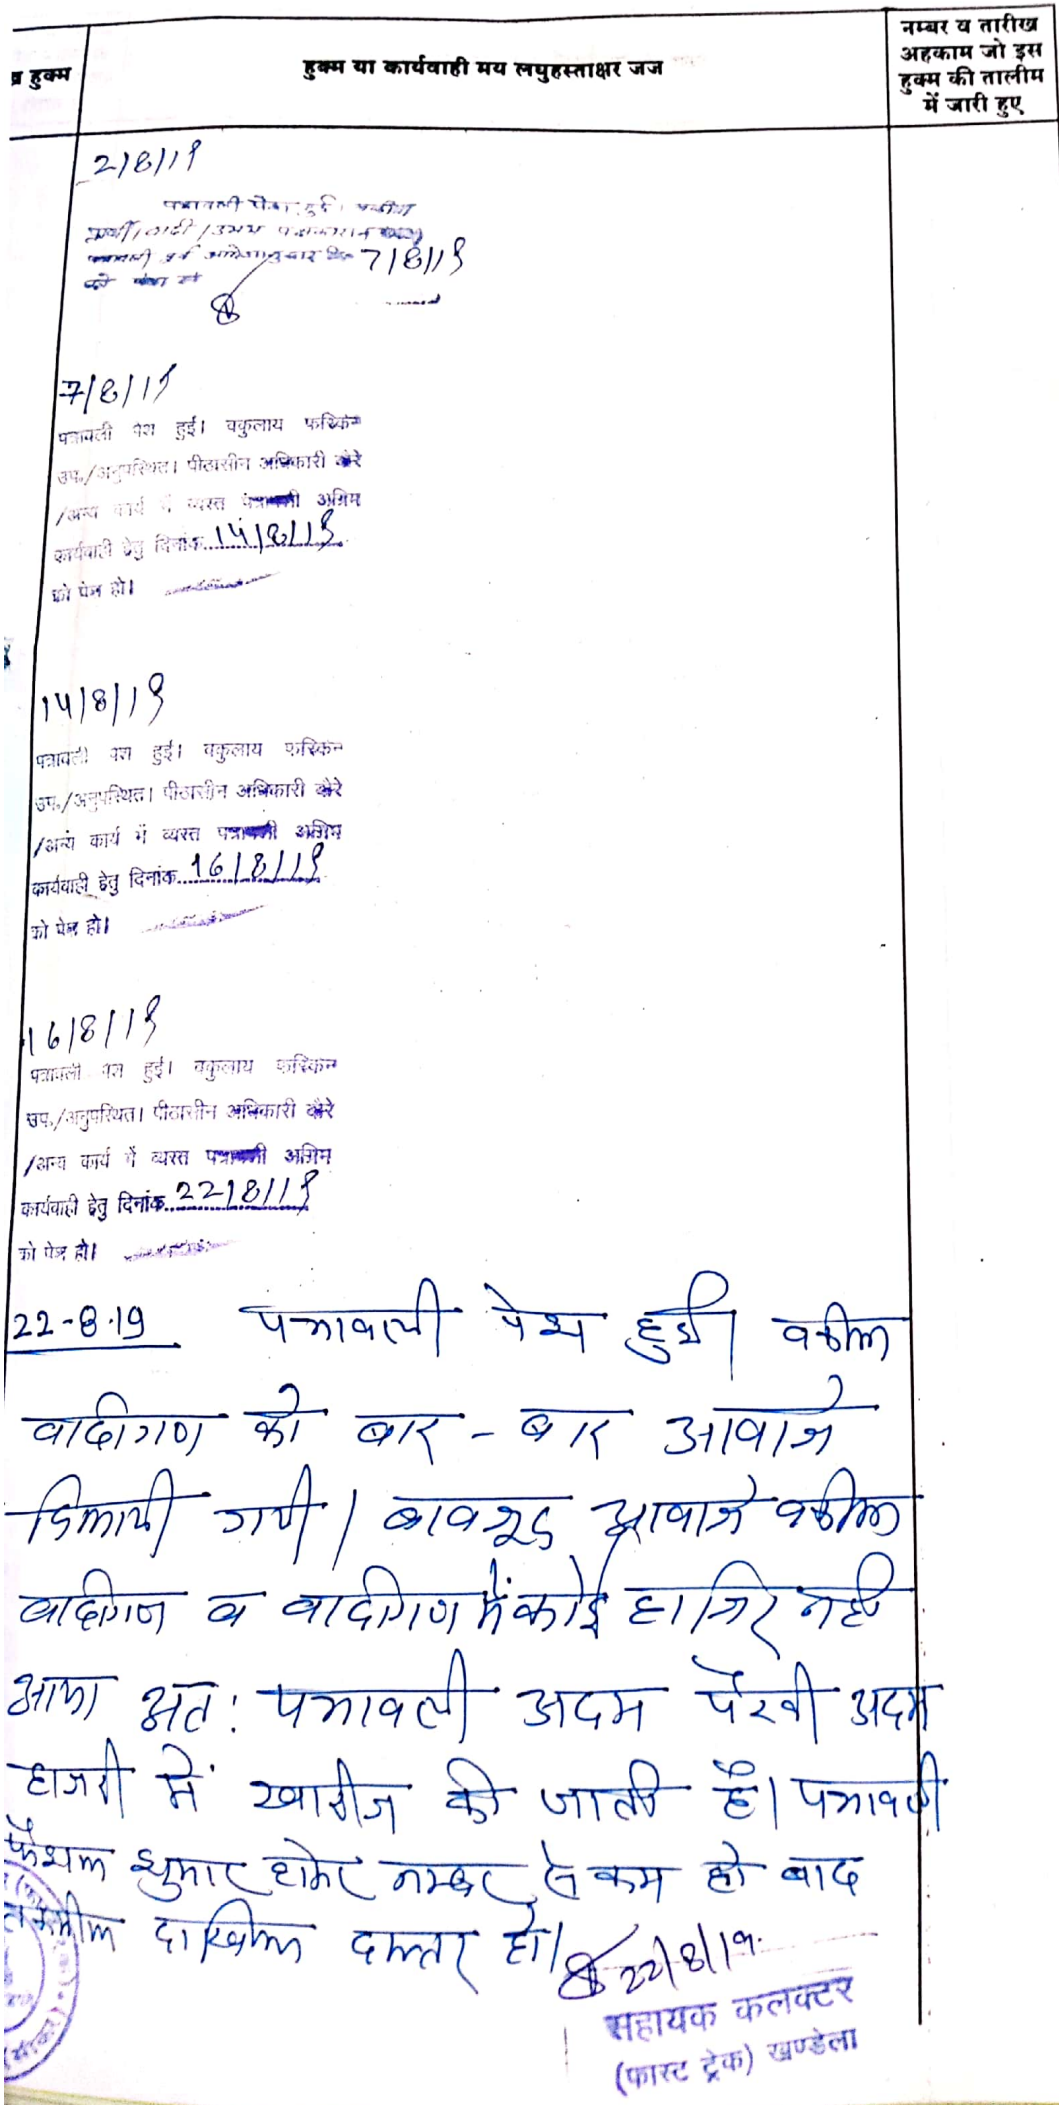 हुक्म
हुक्म या कार्यवाही मय लघुहस्ताक्षर जज
नम्बर व तारीख
अहकाम जो इस
हुक्म की तालीम
में जारी हुए
2/8/19
पत्रावली पेश हुई।
7/8/19
7/8/19
पत्रावली पेश हुई। वकुलाय फरिकेन
उप./अनुपस्थित। पीठासीन अधिकारी दौरे
/अन्य कार्य में व्यस्त पत्रावली अग्रिम
कार्यवाही हेतु दिनांक 14/8/19
को पेश हो।
14/8/19
पत्रावली पेश हुई। वकुलाय फरिकेन
उप./अनुपस्थित। पीठासीन अधिकारी दौरे
/अन्य कार्य में व्यस्त पत्रावली अग्रिम
कार्यवाही हेतु दिनांक 16/8/19
को पेश हो।
16/8/19
पत्रावली पेश हुई। वकुलाय फरिकेन
उप./अनुपस्थित। पीठासीन अधिकारी दौरे
/अन्य कार्य में व्यस्त पत्रावली अग्रिम
कार्यवाही हेतु दिनांक 22/8/19
को पेश हो।
22-8-19 पत्रावली पेश हुई। वकील
वादीगण को बार - बार आवाजे
दिलायी गयी। बावजूद आवाजे वकील
वादीगण व वादीगण में कोई हाजिर नही
आया अत: पत्रावली अदम पैरवी अदम
हाजरी में खारीज की जाती है। पत्रावली
फैशल शुमार होकर नम्बर से कम हो बाद
तकमील दाखिल दफ्तर हो।
22/8/19
सहायक कलक्टर
(फास्ट ट्रेक) खण्डेला